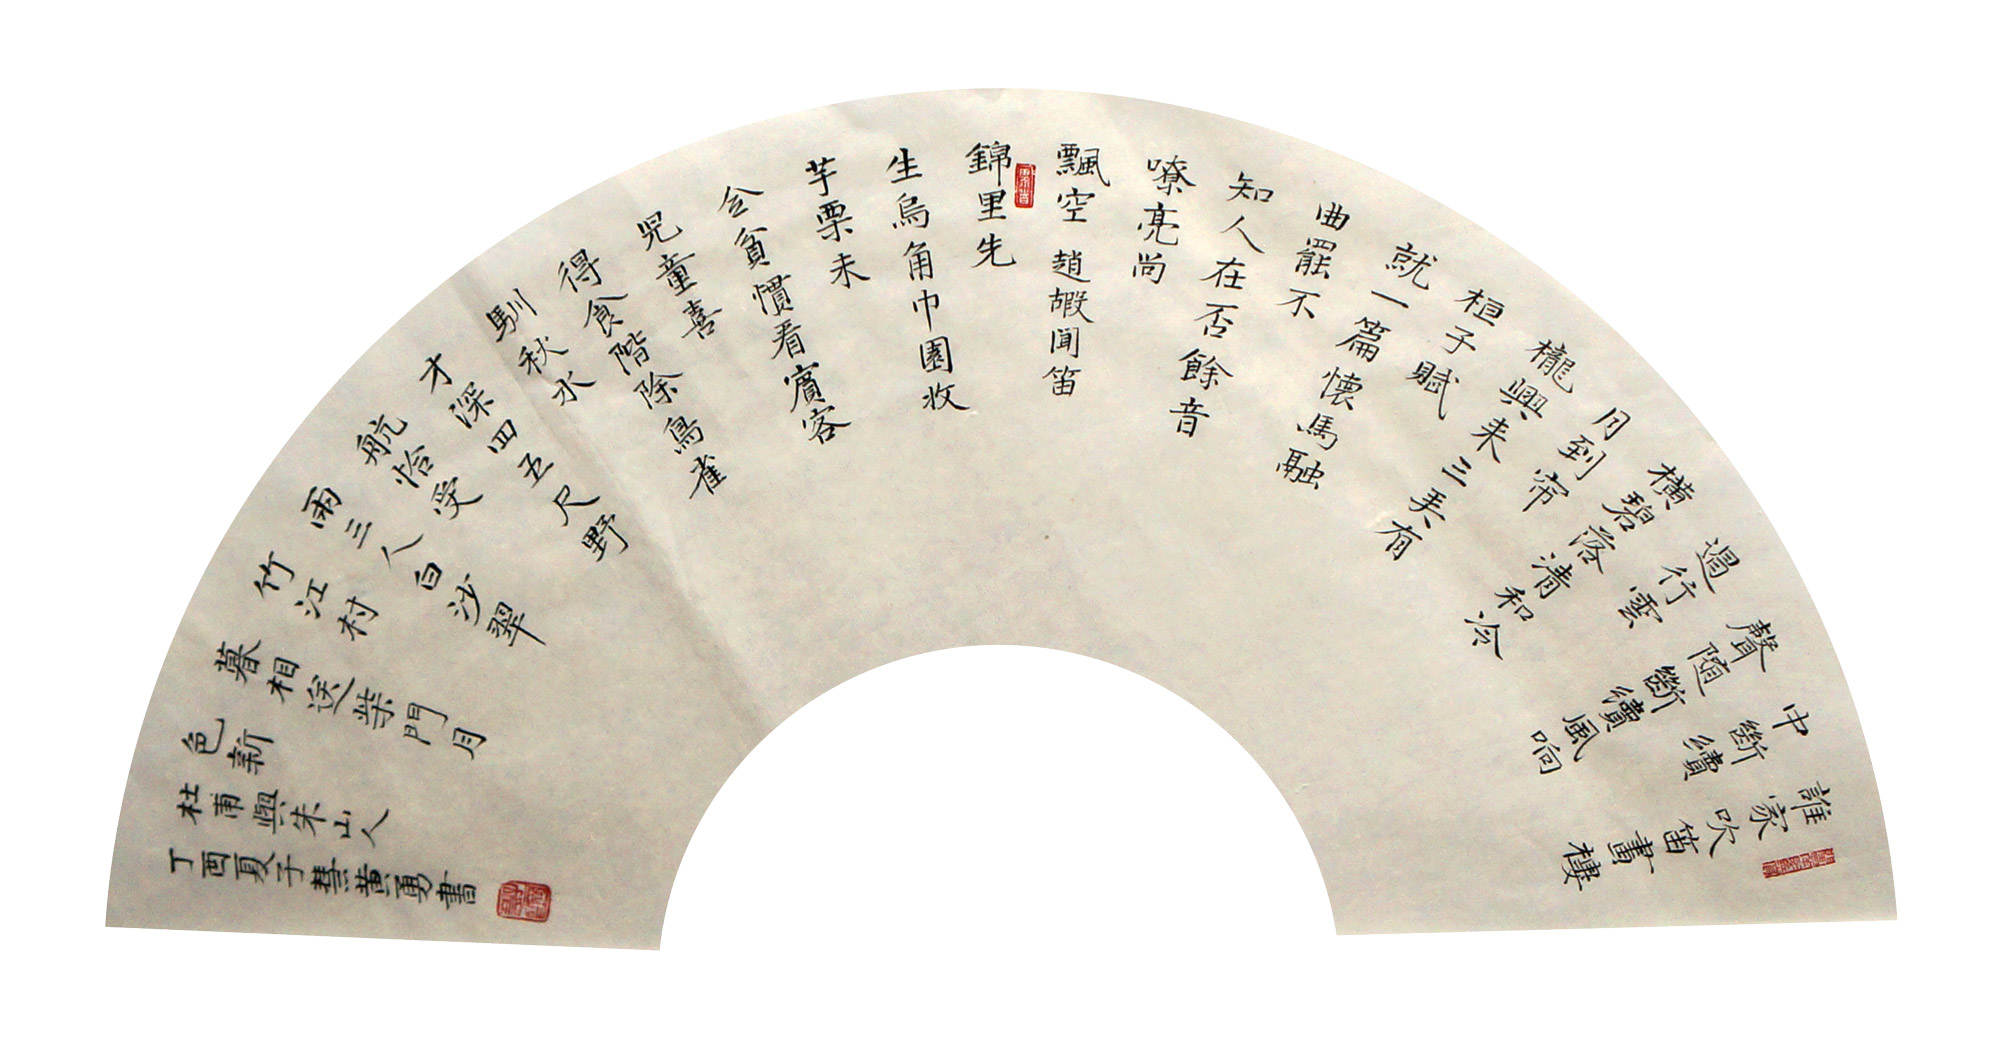 誰家吹笛畫樓
中斷續
聲隨斷續風响
過行雲
橫碧落清和冷
月到帘
櫳興来三弄有
桓子賦
就一篇懷馬融
曲罷不
知人在否餘音
嘹亮尚
飄空 趙嘏聞笛
錦里先
生烏角巾園收
芋栗未
全貧慣看賓客
兒童喜
得食階除鳥雀
馴秋水
才深四五尺野
航恰受
兩三人白沙翠
竹江村
暮相送柴門月
色新
杜甫與朱山人
丁酉夏子慧黄勇書